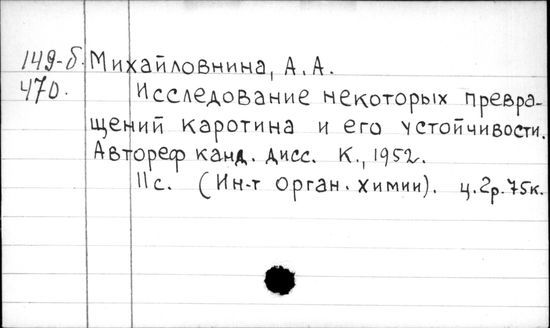 149-б. Михайловнина, А.А.
470. Исследование некоторых превра-
щений каротина и его устойчивости.
Автореф канд. дисс. К., 1952.
11с. (Ин-т орган. химии). ц.2р.75к.